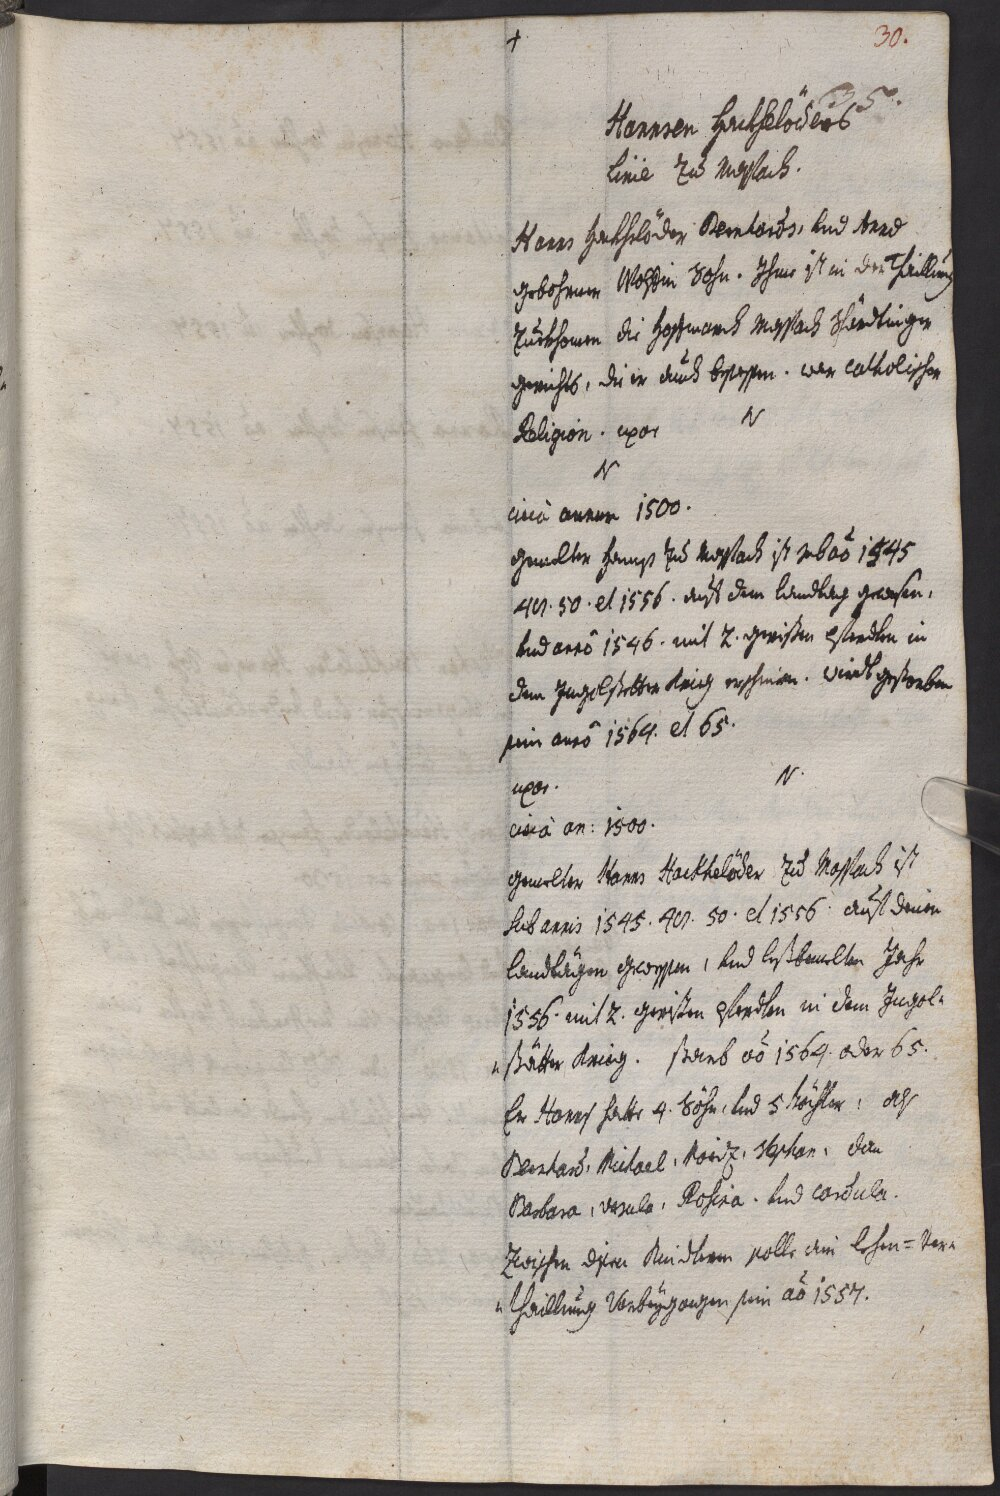 +
30.
35.
Hannsen Hackhelöders
Linie zu Maspach.
Hanns Hackhelöder Bernhards, und Anna
gebohrnen Sohn. Ihme ist in der Thaillung
zuekhomen die Hofmarch Maspach Schärdinger
gerichts, die er auch besessen. war Catholischer
Religion. uxor N
N
circa annum 1500.
gemelter Hanns zu Maspach ist sub aõ 1545
49. 50. et 1556. auf dem Landtag gewesen,
und anno 1546. mit 2. geristen Pferdten in
dem Ingolstetter Krieg erschinen. wirdt gestorben
sein anno 1564. et 65.
uxor. N.
circa an: 1500.
gemelter Hanns Hackhelöder zu Maspach ist
sub annis 1545. 49. 50. et 1556. auf denen
Landtägen gewessen, und leztbemelten Jahr
1556. mit 2. geristen Pferdten in dem Ingol-
stätter Krieg. starb aõ 1564. oder 65.
Er Hanns hatte 4. Söhn, und 5 Töchter, als
Bernhard, Michael, Moriz, Stephan, dan
Barbara, Ursula, Rosina. und Cordula.
Zwischen disen Kindtern solle ein Lehen=Ver-
thaillung Vorbeygangen sein aõ 1557.